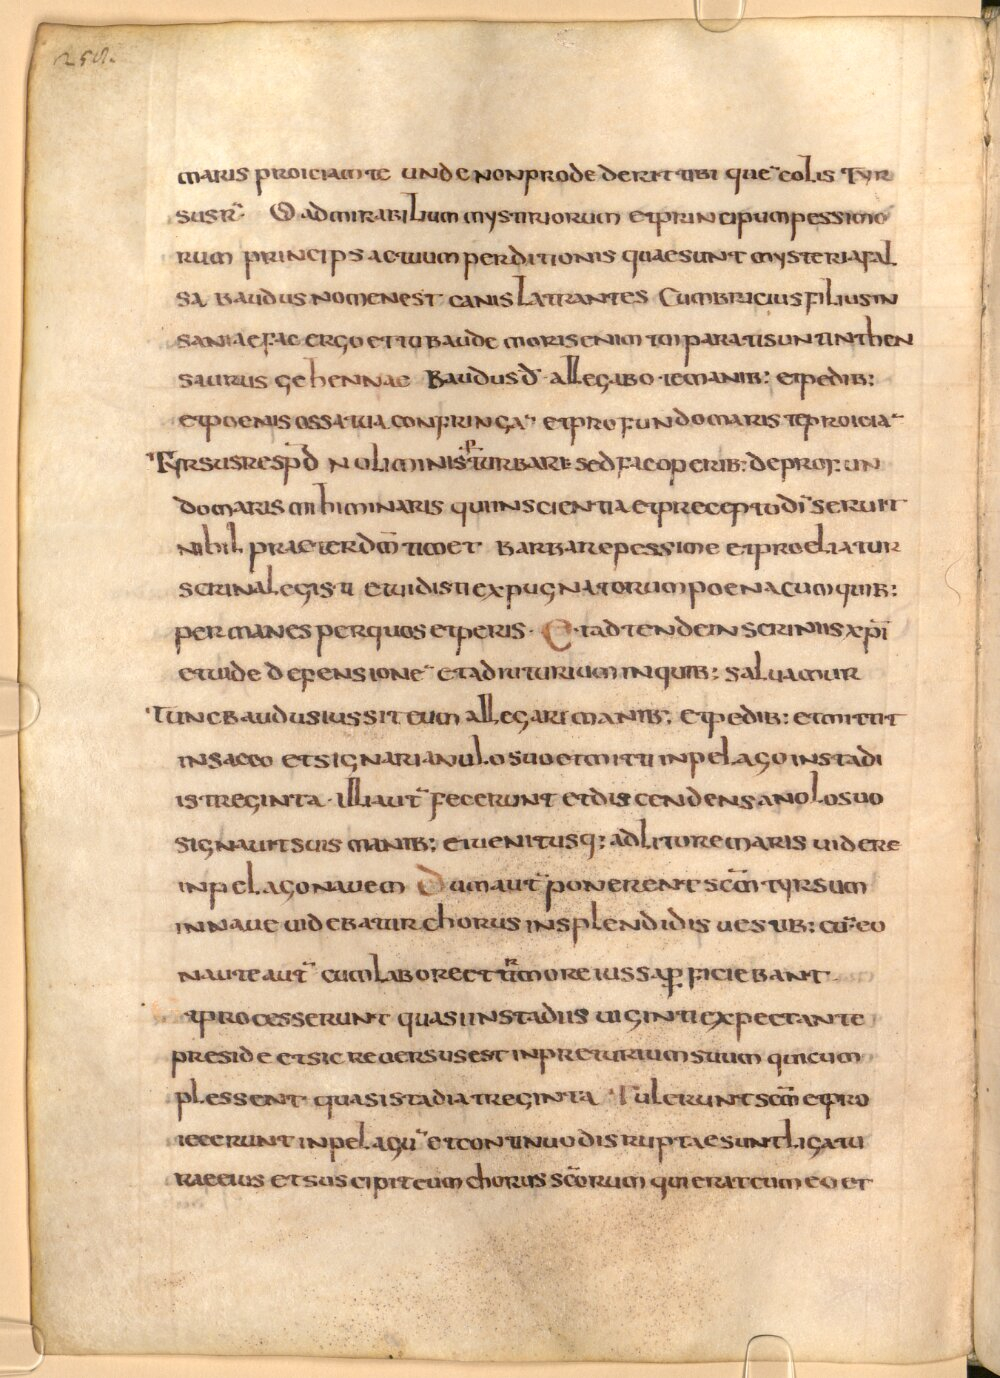 250.
maris proiciam te unde non prode derit tibi que~ colis Tyr
sus r~ O admirabilium mystiriorum et principum pessimo
rum princips actuum perditionis quae sunt mysteria fal
sa baudus nomen est canis latrantes Cumbricius filius in
saniae fac ergo et tu baude moris enim tui parati sunt in then
saurus gehennae Baudus d̄ allegabo te manib: et pedib:
et poenis ossa tua confringa~ et profundo maris te proicia~
Tyrsus resp̄d noli minis turbare sed fac operib: de prof:un
do maris mihi minaris qui in scientia et precepto dī seruit
nihil praeter dm̄ timet barbare pessime et proeliatur
scrina legisti et uidisti expugnatorum poena cum quib:
per manes per quos et peris. Et adtende in scriniis xp̄i
et uide defensione~ et adiuturium in quib: saluamur
Tunc baudus iussit eum allegari manib: et pedib: et mittit
in sacco et signari anulo suo et mitti in pelago in stadi
is treginta. illi aut~ fecerunt et discendens anolo suo
signauit suis manib: et uenit usq: ad litore maris uidere
in pelago nauem Dum aut~ ponerent scm̄ tyrsum
in naue uidebatur chorus in splendidis uestib: cu~ eo
naute aut~ cum labore et timore iussa p̄ficiebant
et processerunt quasi in stadiis uiginti expectante
preside et sic reuersus est in preturium suum qui cum
plessent quasi stadia treginta Tulerunt scm̄ et pro
iecerunt in pelagu~ et continuo disruptae sunt ligatu
rae eius et suscipit eum chorus scōrum qui erat cum eo et